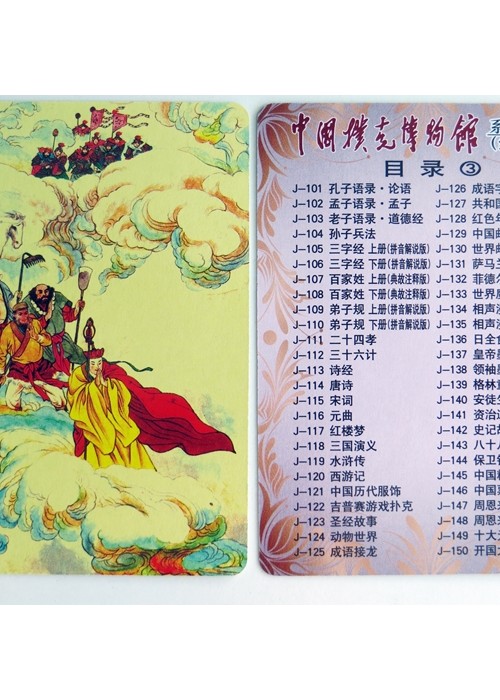 中国扑克博物馆 系
目录③
J-101 孔子语录·论语
J-102 孟子语录·孟子
J-103 老子语录·道德经
J-104 孙子兵法
J-105 三字经 上册(拼音解说版)
J-106 三字经 下册(拼音解说版)
J-107 百家姓 上册(典故注释版)
J-108 百家姓 下册(典故注释版)
J-109 弟子规 上册(拼音解说版)
J-110 弟子规 下册(拼音解说版)
J-111 二十四孝
J-112 三十六计
J-113 诗经
J-114 唐诗
J-115 宋词
J-116 元曲
J-117 红楼梦
J-118 三国演义
J-119 水浒传
J-120 西游记
J-121 中国历代服饰
J-122 吉普赛游戏扑克
J-123 圣经故事
J-124 动物世界
J-125 成语接龙
J-126 成语
J-127 共和国
J-128 红色
J-129 中国
J-130 世界
J-131 萨马兰
J-132 菲德尔
J-133 世界
J-134 相声
J-135 相声
J-136 日全食
J-137 皇帝
J-138 领袖
J-139 格林
J-140 安徒生
J-141 资治通
J-142 史记故
J-143 八十八
J-144 保卫
J-145 中国
J-146 中国
J-147 周恩来
J-148 周恩来
J-149 十大元
J-150 开国